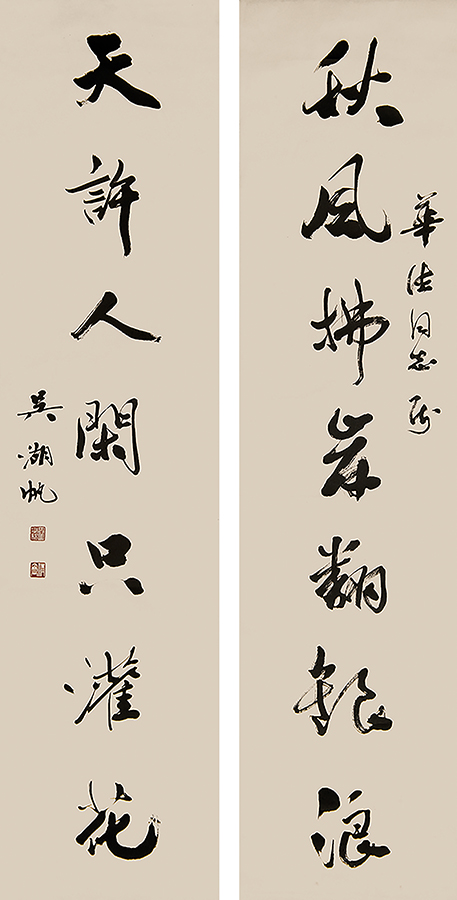 秋風拂岸翻銀浪
華同志屬
天許人閑只灌花
吳湖帆